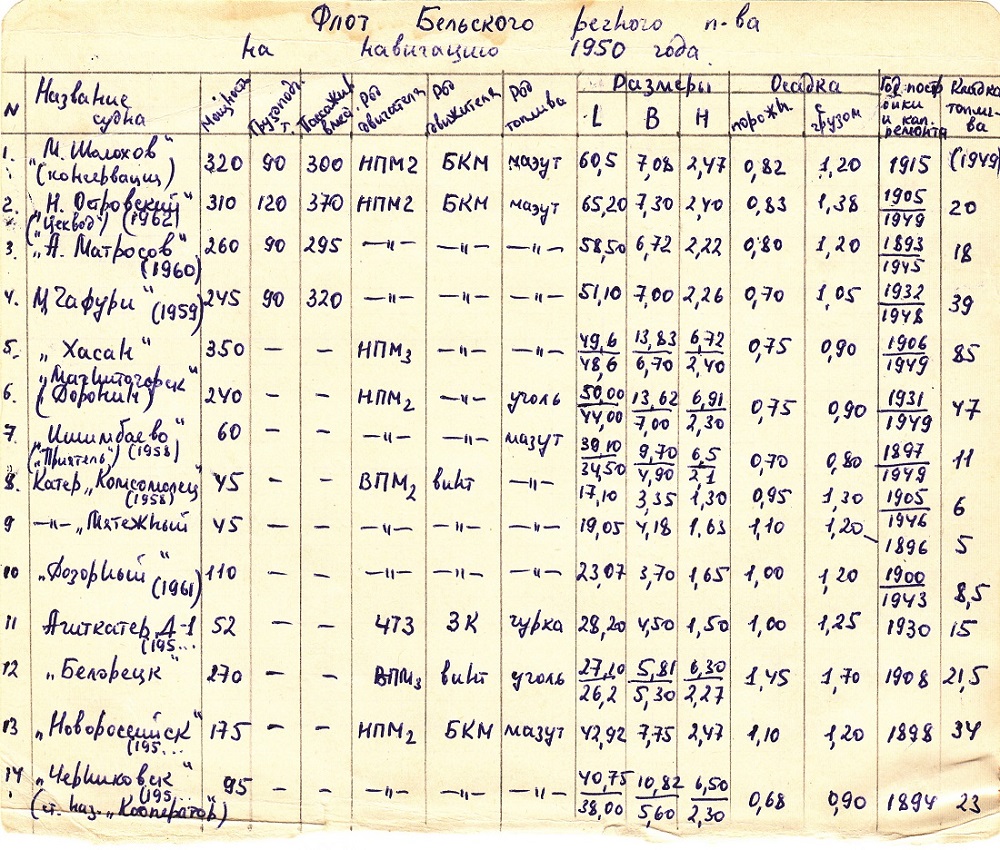 Флот Бельского речного п-ва
на навигацию 1950 года.
N Название судна Мощность Грузопод. т. Пассажир вмест. Род двигателя Род движителя Род топлива Размеры L B H Осадка порожн. с грузом Год постройки и кап. ремонта Кладка топли-ва
1. „М. Шолохов“ (консервац) 320 90 300 НПМ2 БКМ мазут 60,5 7,08 2,47 0,82 1,20 1915 (1949)
2. „Н. Островский“ („Цеквод“) (1962) 310 120 370 НПМ2 БКМ мазут 65,20 7,30 2,40 0,83 1,38 1905/1949 20
3. „А. Матросов“ (1960) 260 90 295 —"— —"— —"— 58,50 6,72 2,22 0,80 1,20 1893/1945 18
4. М Гафури“ (1959) 245 90 320 —"— —"— —"— 51,10 7,00 2,26 0,70 1,05 1932/1948 39
5. „Хасан“ 350 — — НПМ3 —"— —"— 49,6/48,6 13,83/6,70 6,72/2,40 0,75 0,90 1906/1949 85
6. „Магнитогорск“ (Доронин) 240 — — НПМ2 —"— уголь 50,00/44,00 13,62/7,00 6,91/2,30 0,75 0,90 1931/1949 47
7. „Ишимбаево“ („Приятель“) (1958) 60 — — —"— —"— мазут 39,10/34,50 9,70/4,90 6,5/2,1 0,70 0,80 1897/1949 11
8. Катер „Комсомолец“ (1958) 45 — — ВПМ2 винт —"— 17,10 3,35 1,30 0,95 1,30 1905/1946 6
9 —"— „Мятежный 45 — — —"— —"— —"— 19,05 4,18 1,63 1,10 1,20 1896 5
10 „Дозорный“ (1961) 110 — — —"— —"— —"— 23,07 3,70 1,65 1,00 1,20 1900/1943 8,5
11 Агиткатер Д-1 (195... 52 — — 4ТЗ ЗК чурка 28,20 4,50 1,50 1,00 1,25 1930 15
12 „Белорецк“ 270 — — ВПМ3 винт уголь 27,10/26,2 5,81/5,30 6,30/2,27 1,45 1,70 1908 21,5
13 „Новороссийск“ (195... 175 — — НПМ2 БКМ мазут 42,92 7,75 2,47 1,10 1,20 1898 34
14 „Черниковск“ (195... (ст. наз. „Кооператор“) 95 — — —"— —"— —"— 40,75/38,00 10,82/5,60 6,50/2,30 0,68 0,90 1894 23